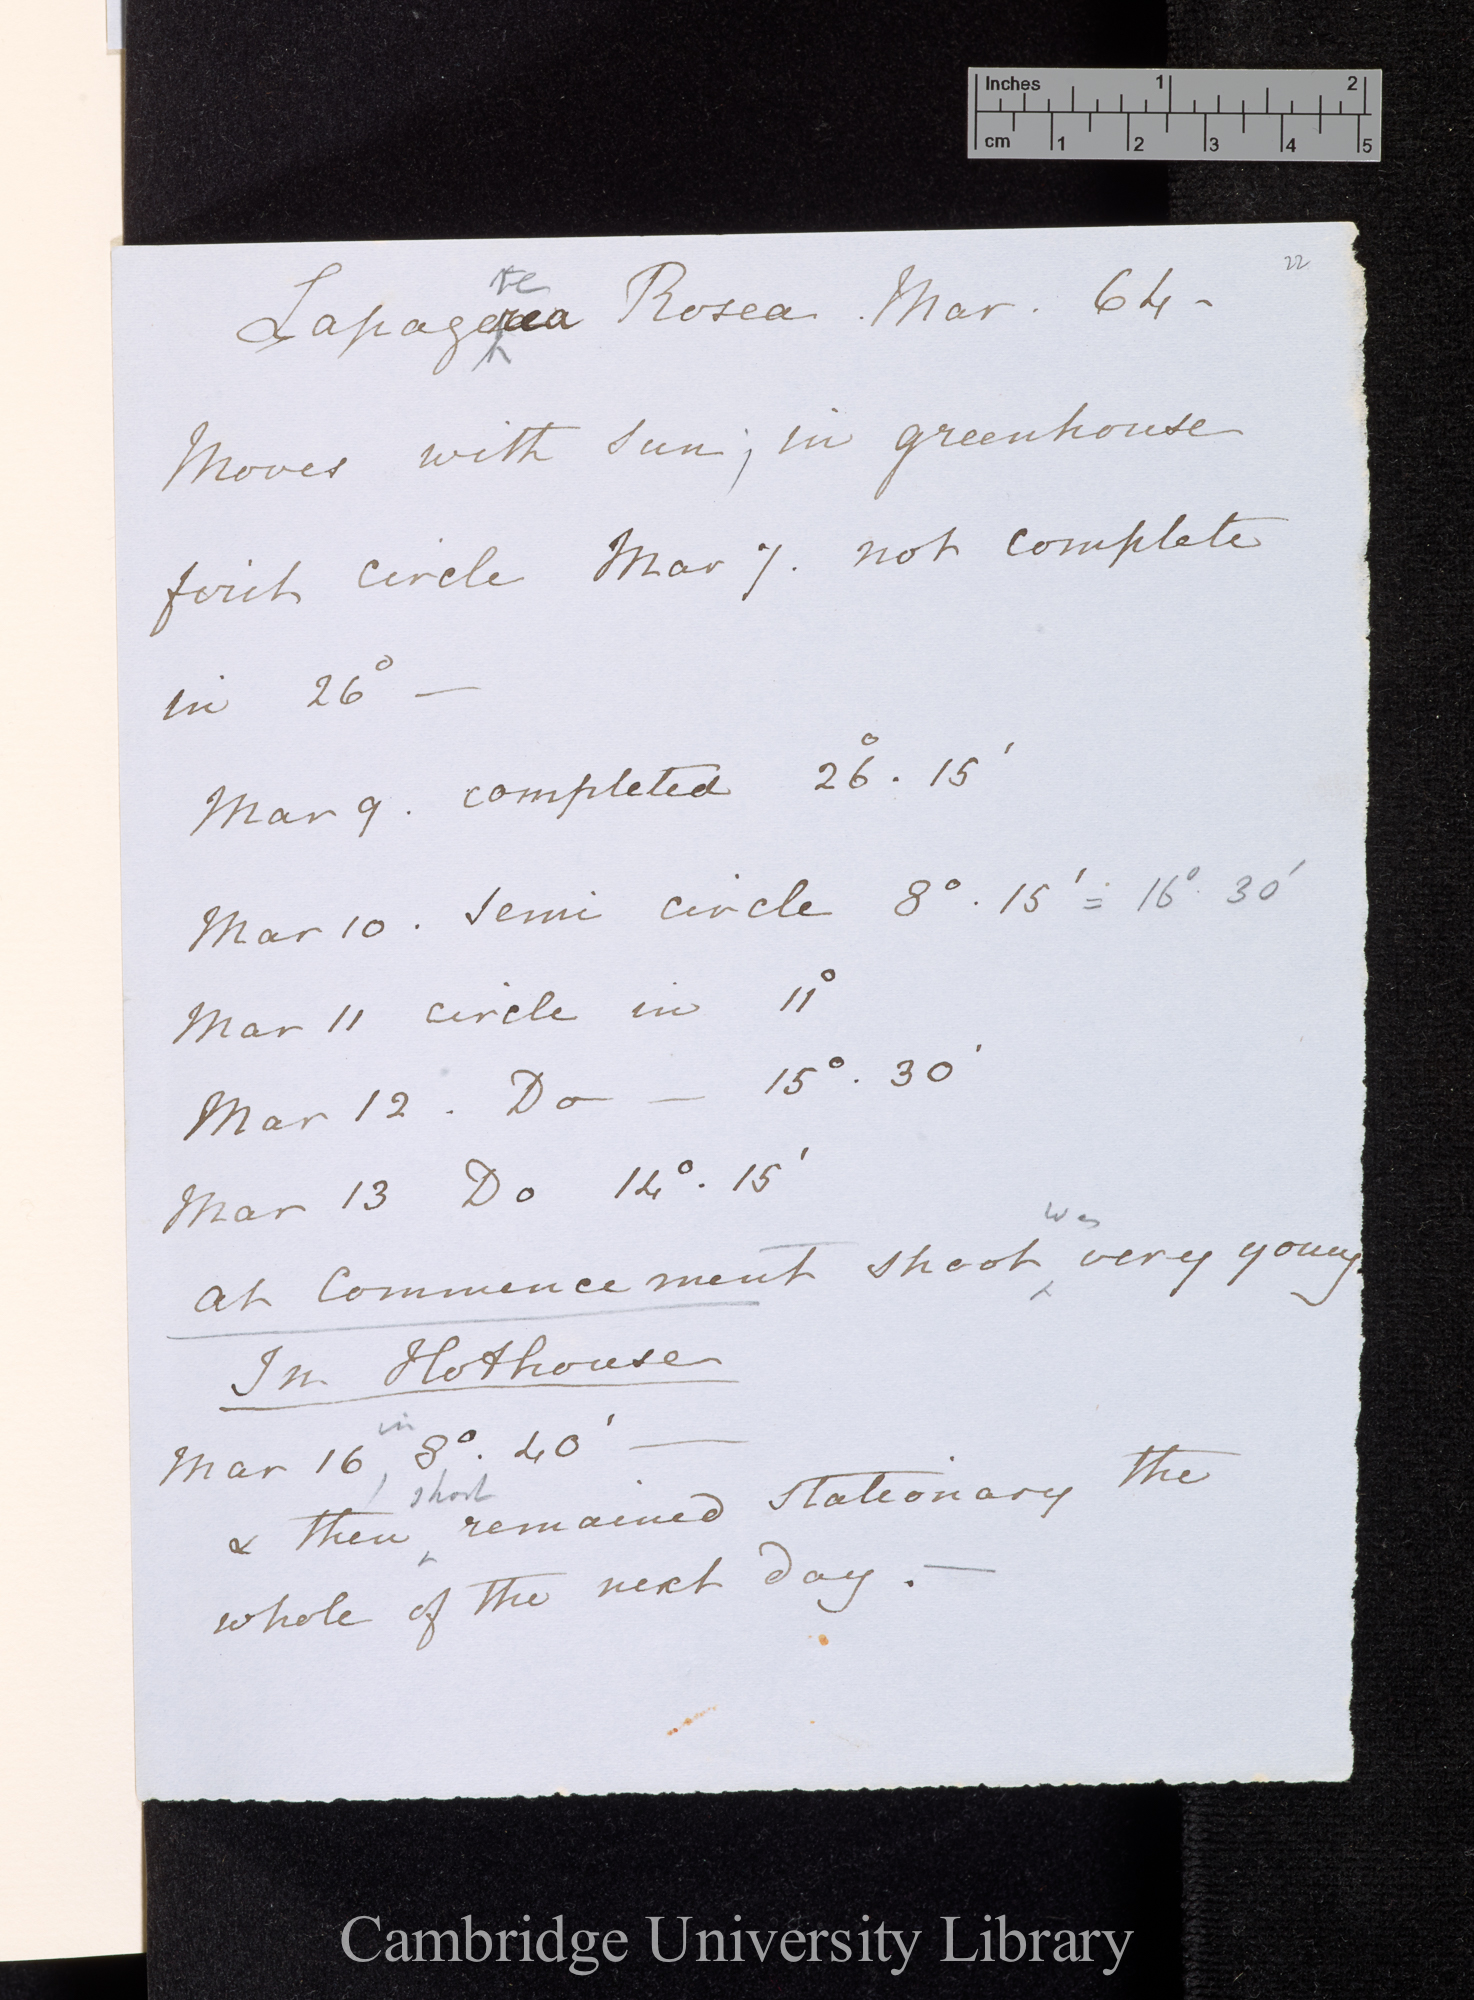 Inches 1 2
cm 1 2 3 4 5
22
re
Lapagerea Rosea. Mar. 64 -
Moves with sun; in greenhouse
first circle Mar 7. not complete
in 26° —
Mar 9. completed 26°. 15'
Mar 10. Semi circle 8°. 15' = 16°. 30'
Mar 11 circle in 11°
Mar 12. Do — 15°. 30'
Mar 13 Do 14°. 15'
was
at commencement shoot ^ very young.
In Hothouse
in
Mar 16 8°. 40' —
shoot
& then ^ remained stationary the
whole of the next day. —
Cambridge University Library